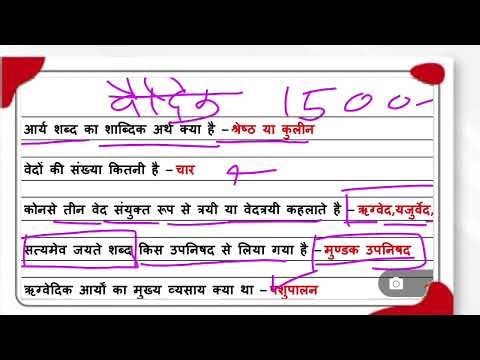 वैदिक 1500-
आर्य शब्द का शाब्दिक अर्थ क्या है – श्रेष्ठ या कुलीन
वेदों की संख्या कितनी है – चार
कोनसे तीन वेद संयुक्त रूप से त्रयी या वेदत्रयी कहलाते है – ऋग्वेद,यजुर्वेद,
सत्यमेव जयते शब्द किस उपनिषद से लिया गया है – मुण्डक उपनिषद
ऋग्वेदिक आर्यो का मुख्य व्यवसाय क्या था – पशुपालन